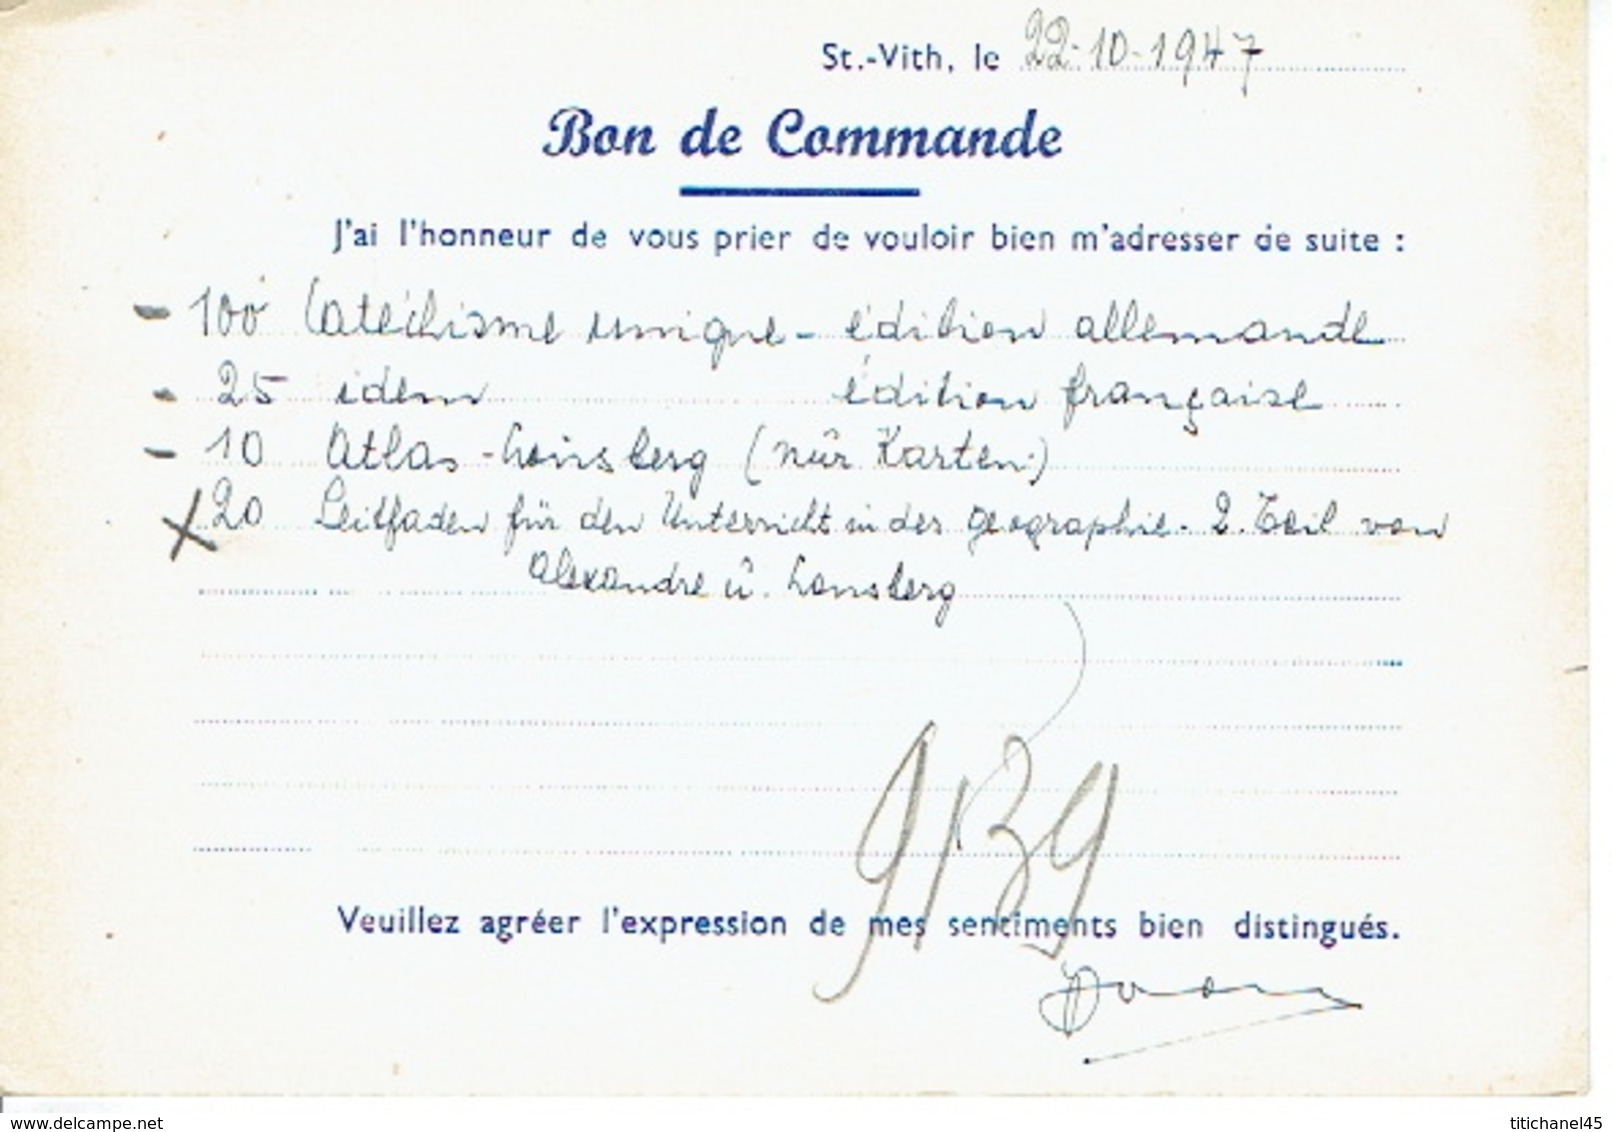 St.-Vith, le 22-10-1947
Bon de Commande
J'ai l'honneur de vous prier de vouloir bien m'adresser de suite :
- 100 Catéchisme unique - édition allemande
- 25 idem édition française
- 10 Atlas - Lonsberg (nûr Karten)
X 20 Leitfaden für den Unterricht in der Geographie. 2. Teil von
Alexandre û. Lonsberg
9139
Veuillez agréer l'expression de mes sentiments bien distingués.
www.delcampe.net
titichanel45